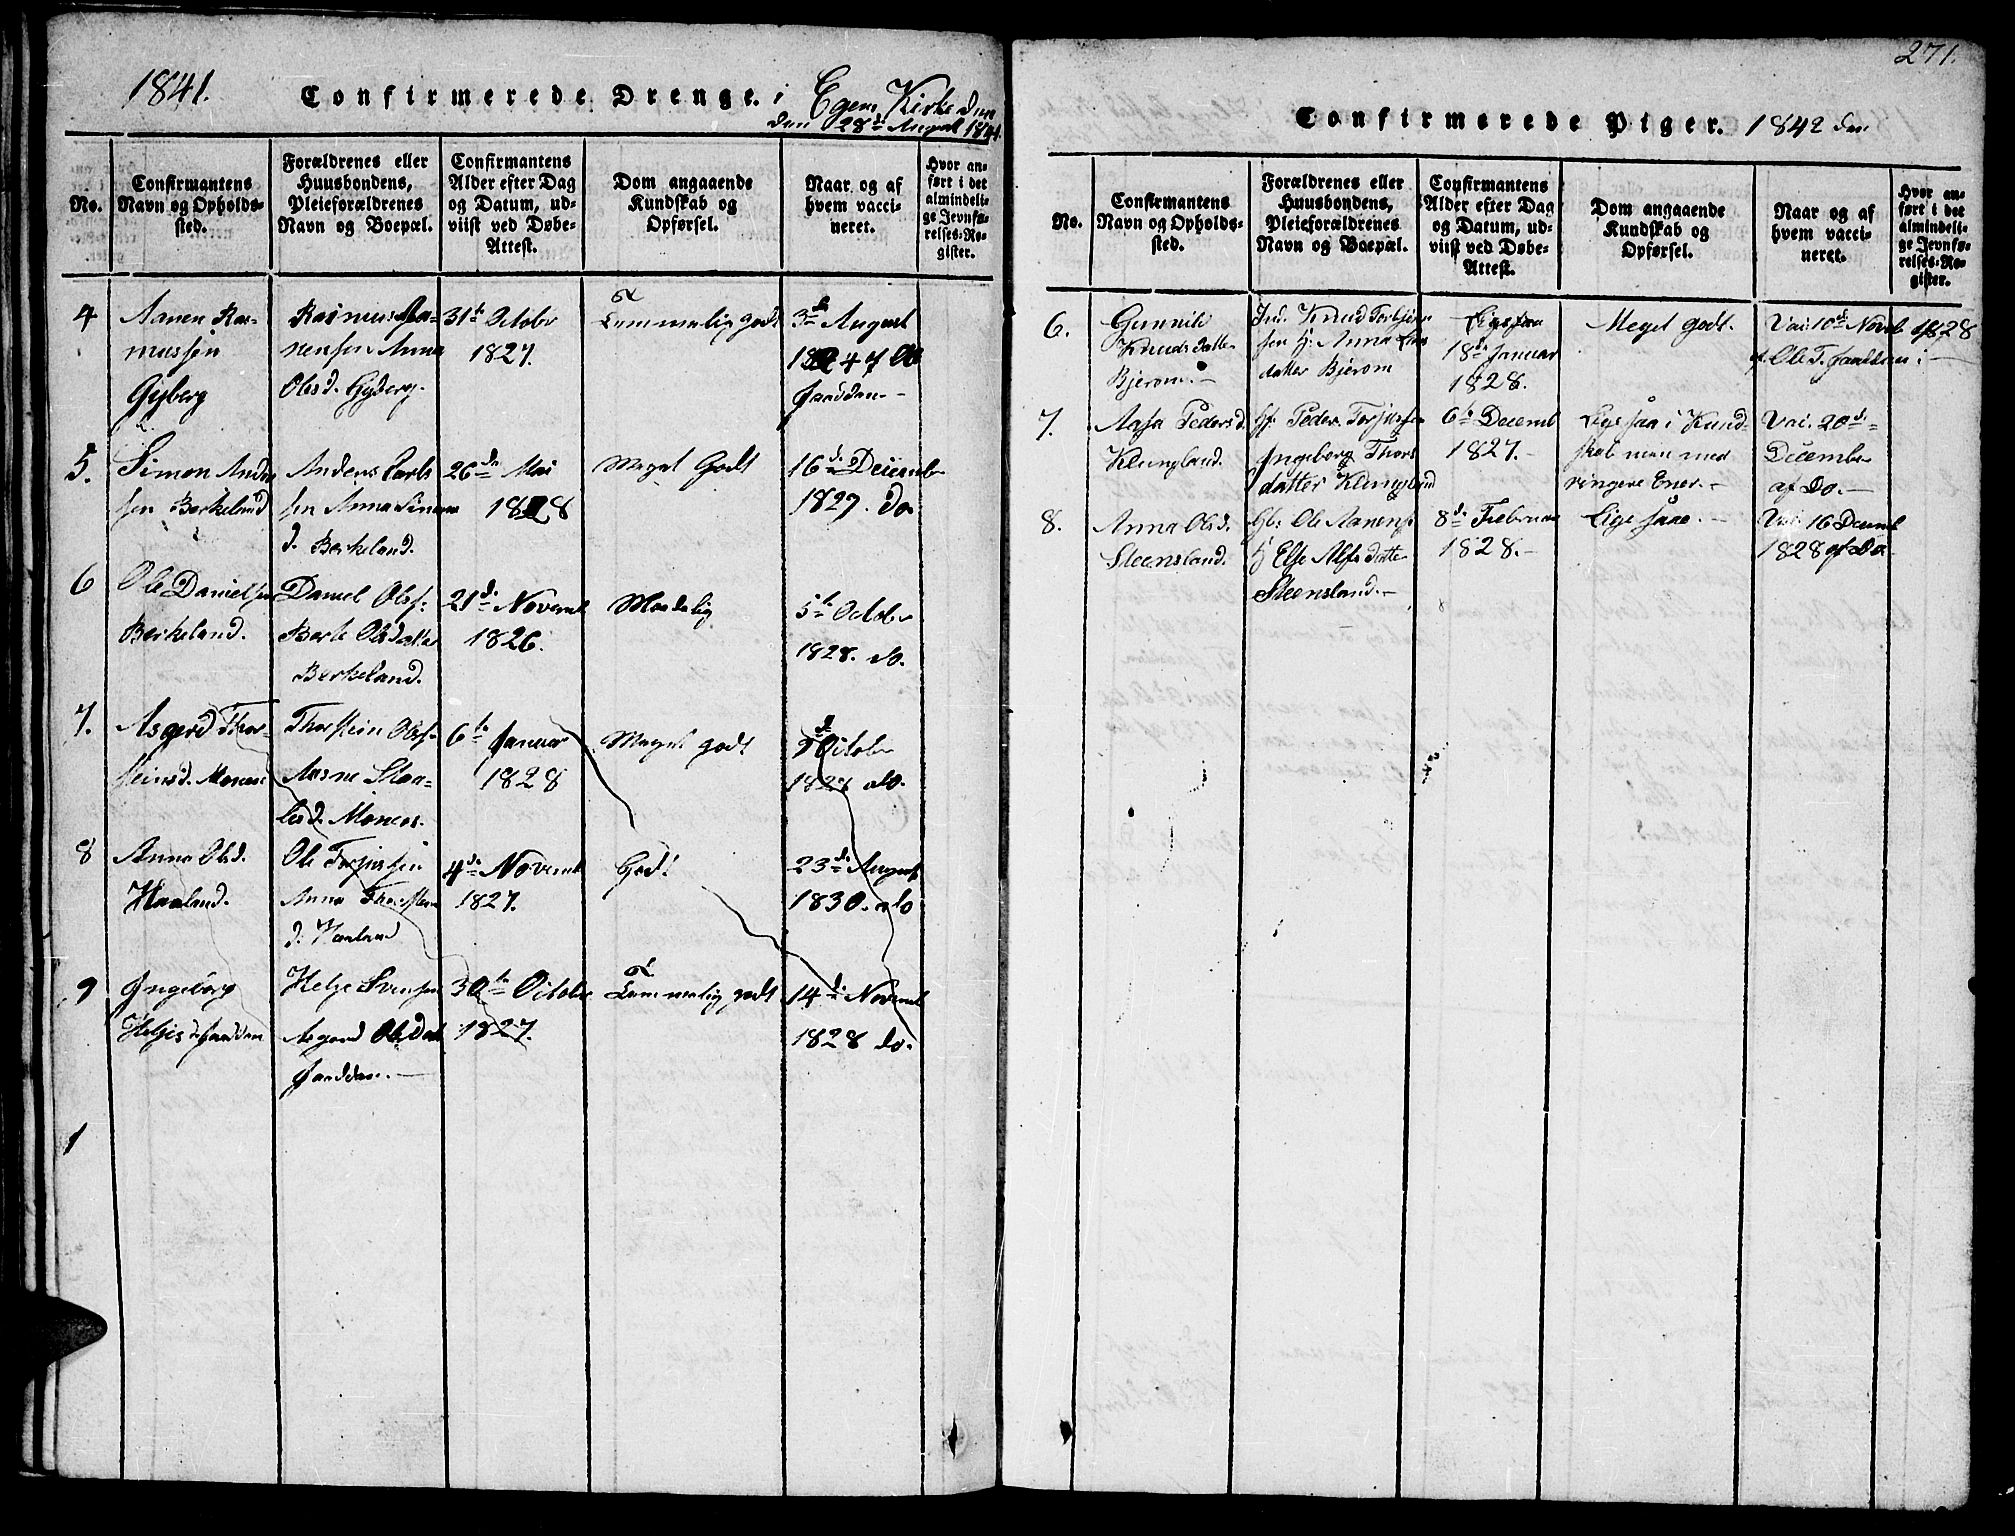 1841. Confirmerede Drenge. i Egen Kirke den
den 28de August 1841.
No.
Confirmantens
Navn og Opholds-
sted.
Forældrenes eller
Huusbondens,
Pleieforældrenes
Navn og Boepæl.
Confirmantens
Alder efter Dag
og Datum, ud-
viist ved Døbe-
Attest.
Dom angaaende
Kundskab og
Opførsel.
Naar og af
hvem vacci-
neret.
Hvor an-
ført i det
almindeli-
ge Jevnfø-
relses-Re-
gister.
4
Aanen Ras-
mussen
Gyberg
Rasmus Aa-
nensen Anna
Olsd. Gyberg.
31te Octobr
1827.
Temmelig godt
3de August
Jaaddan
5.
Simon Anders
sen Berkeland
Anders Carls
sen Anna Simons
d. Berkeland.
26de Mai
1828
Meget Godt
16de Decembr
1827. do
6
Ole Danielsen
Berkeland.
Daniel Olss.
Berte Olsdatter
Berkeland.
21de Novemb
1826.
Maadelig
5te Octobr
1828. do.
7.
Asgerd Thor-
steinsd. Moness
Thorstein Olss.
Aasne Staa-
lesd. Mones.
6te Januar
1828
Meget godt
Octobr
1828 do.
8
Anna Olsd.
Haaland.
Ole Torjussen
Anna Thorsteins
d. Haaland
4de Novemb
1827.
Godt
23de August
1830. do
9
Ingeborg
Helgesd. Jaaddan
Helge Svensen
Asgerd Olsdat
Jaaddan.
30te Octobr
1827.
Temmelig godt
14de Novemb
1828 do.
1
271.
Confirmerede Piger. 1842 den
No.
Confirmantens
Navn og Opholds-
sted.
Forældrenes eller
Huusbondens,
Pleieforældrenes
Navn og Boepæl.
Confirmantens
Alder efter Dag
og Datum, ud-
viist ved Døbe-
Attest.
Dom angaaende
Kundskab og
Opførsel.
Naar og af
hvem vacci-
neret.
Hvor an-
ført i det
almindeli-
ge Jevnfø-
relses-Re-
gister.
6.
Gunnild
Knudsdatter
Bjerom.
Ind. Knud Torbjørn
sen H. Anna Lars
datter Bjerom
Ligesaa
18de Januar
1828.
Meget godt.
Vac. 10de Novb 1828
af Ole T. Jaaddan
7.
Aasa Pedersd.
Klungland.
Hf. Peder Torjussen
Ingeborg Thors
datter Klungland
6te Decemb
1827.
Ligesaa i Kund-
skab men med
ringere Ever.
Vac. 20de
Decembr
af Do.
8.
Anna Olsd.
Steensland.
Gb: Ole Aanens.
H Else Alfsdatter
Steensland.
8de Februar
1828.
Ligesaae.
Vac. 16 Decemb
1828 af Do